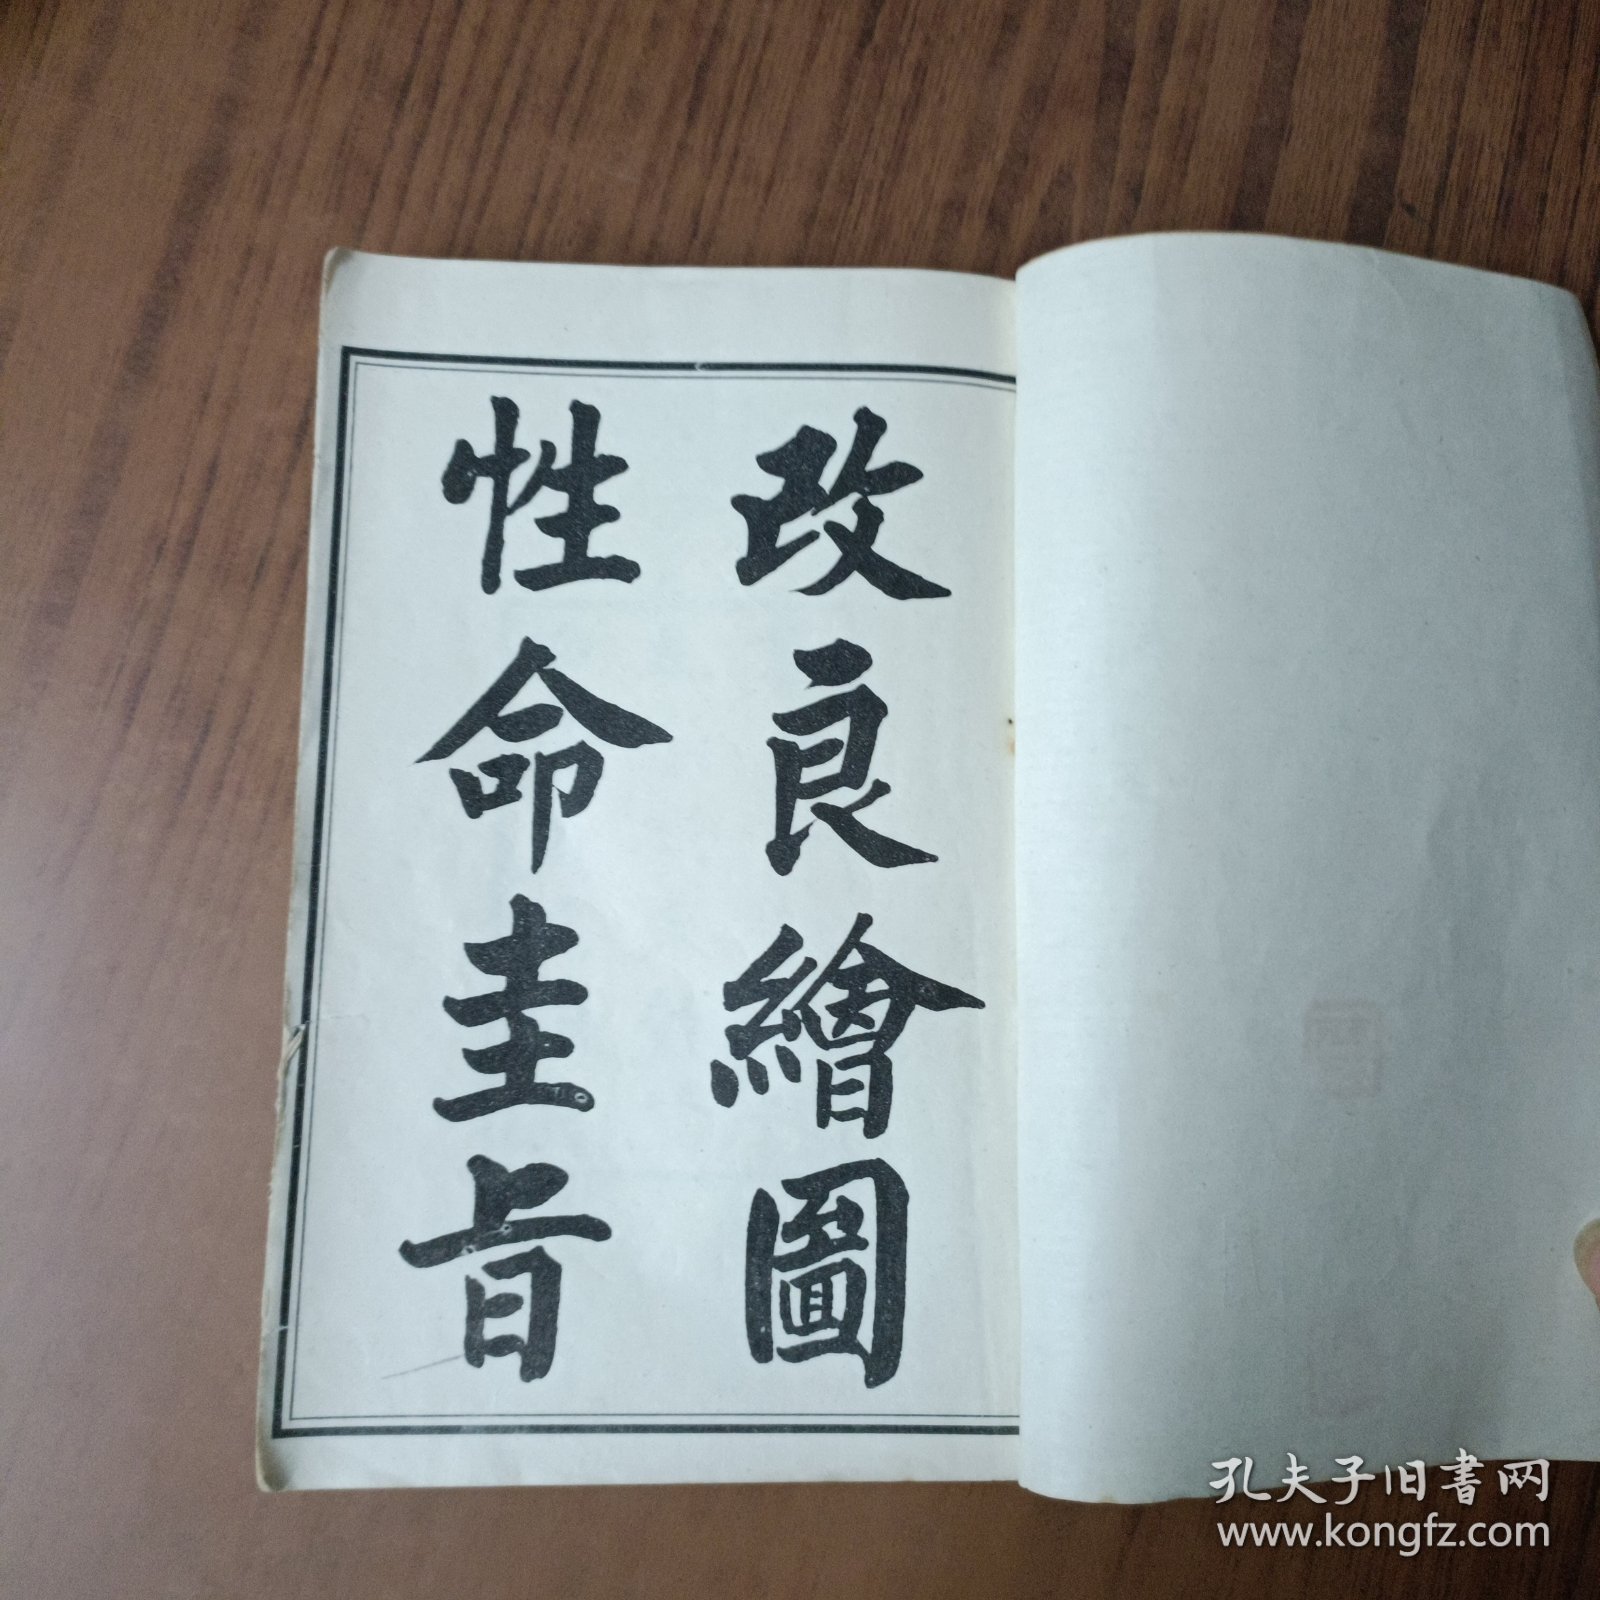 改良繪圖
性命圭旨
孔夫子旧書网
www.kongfz.com